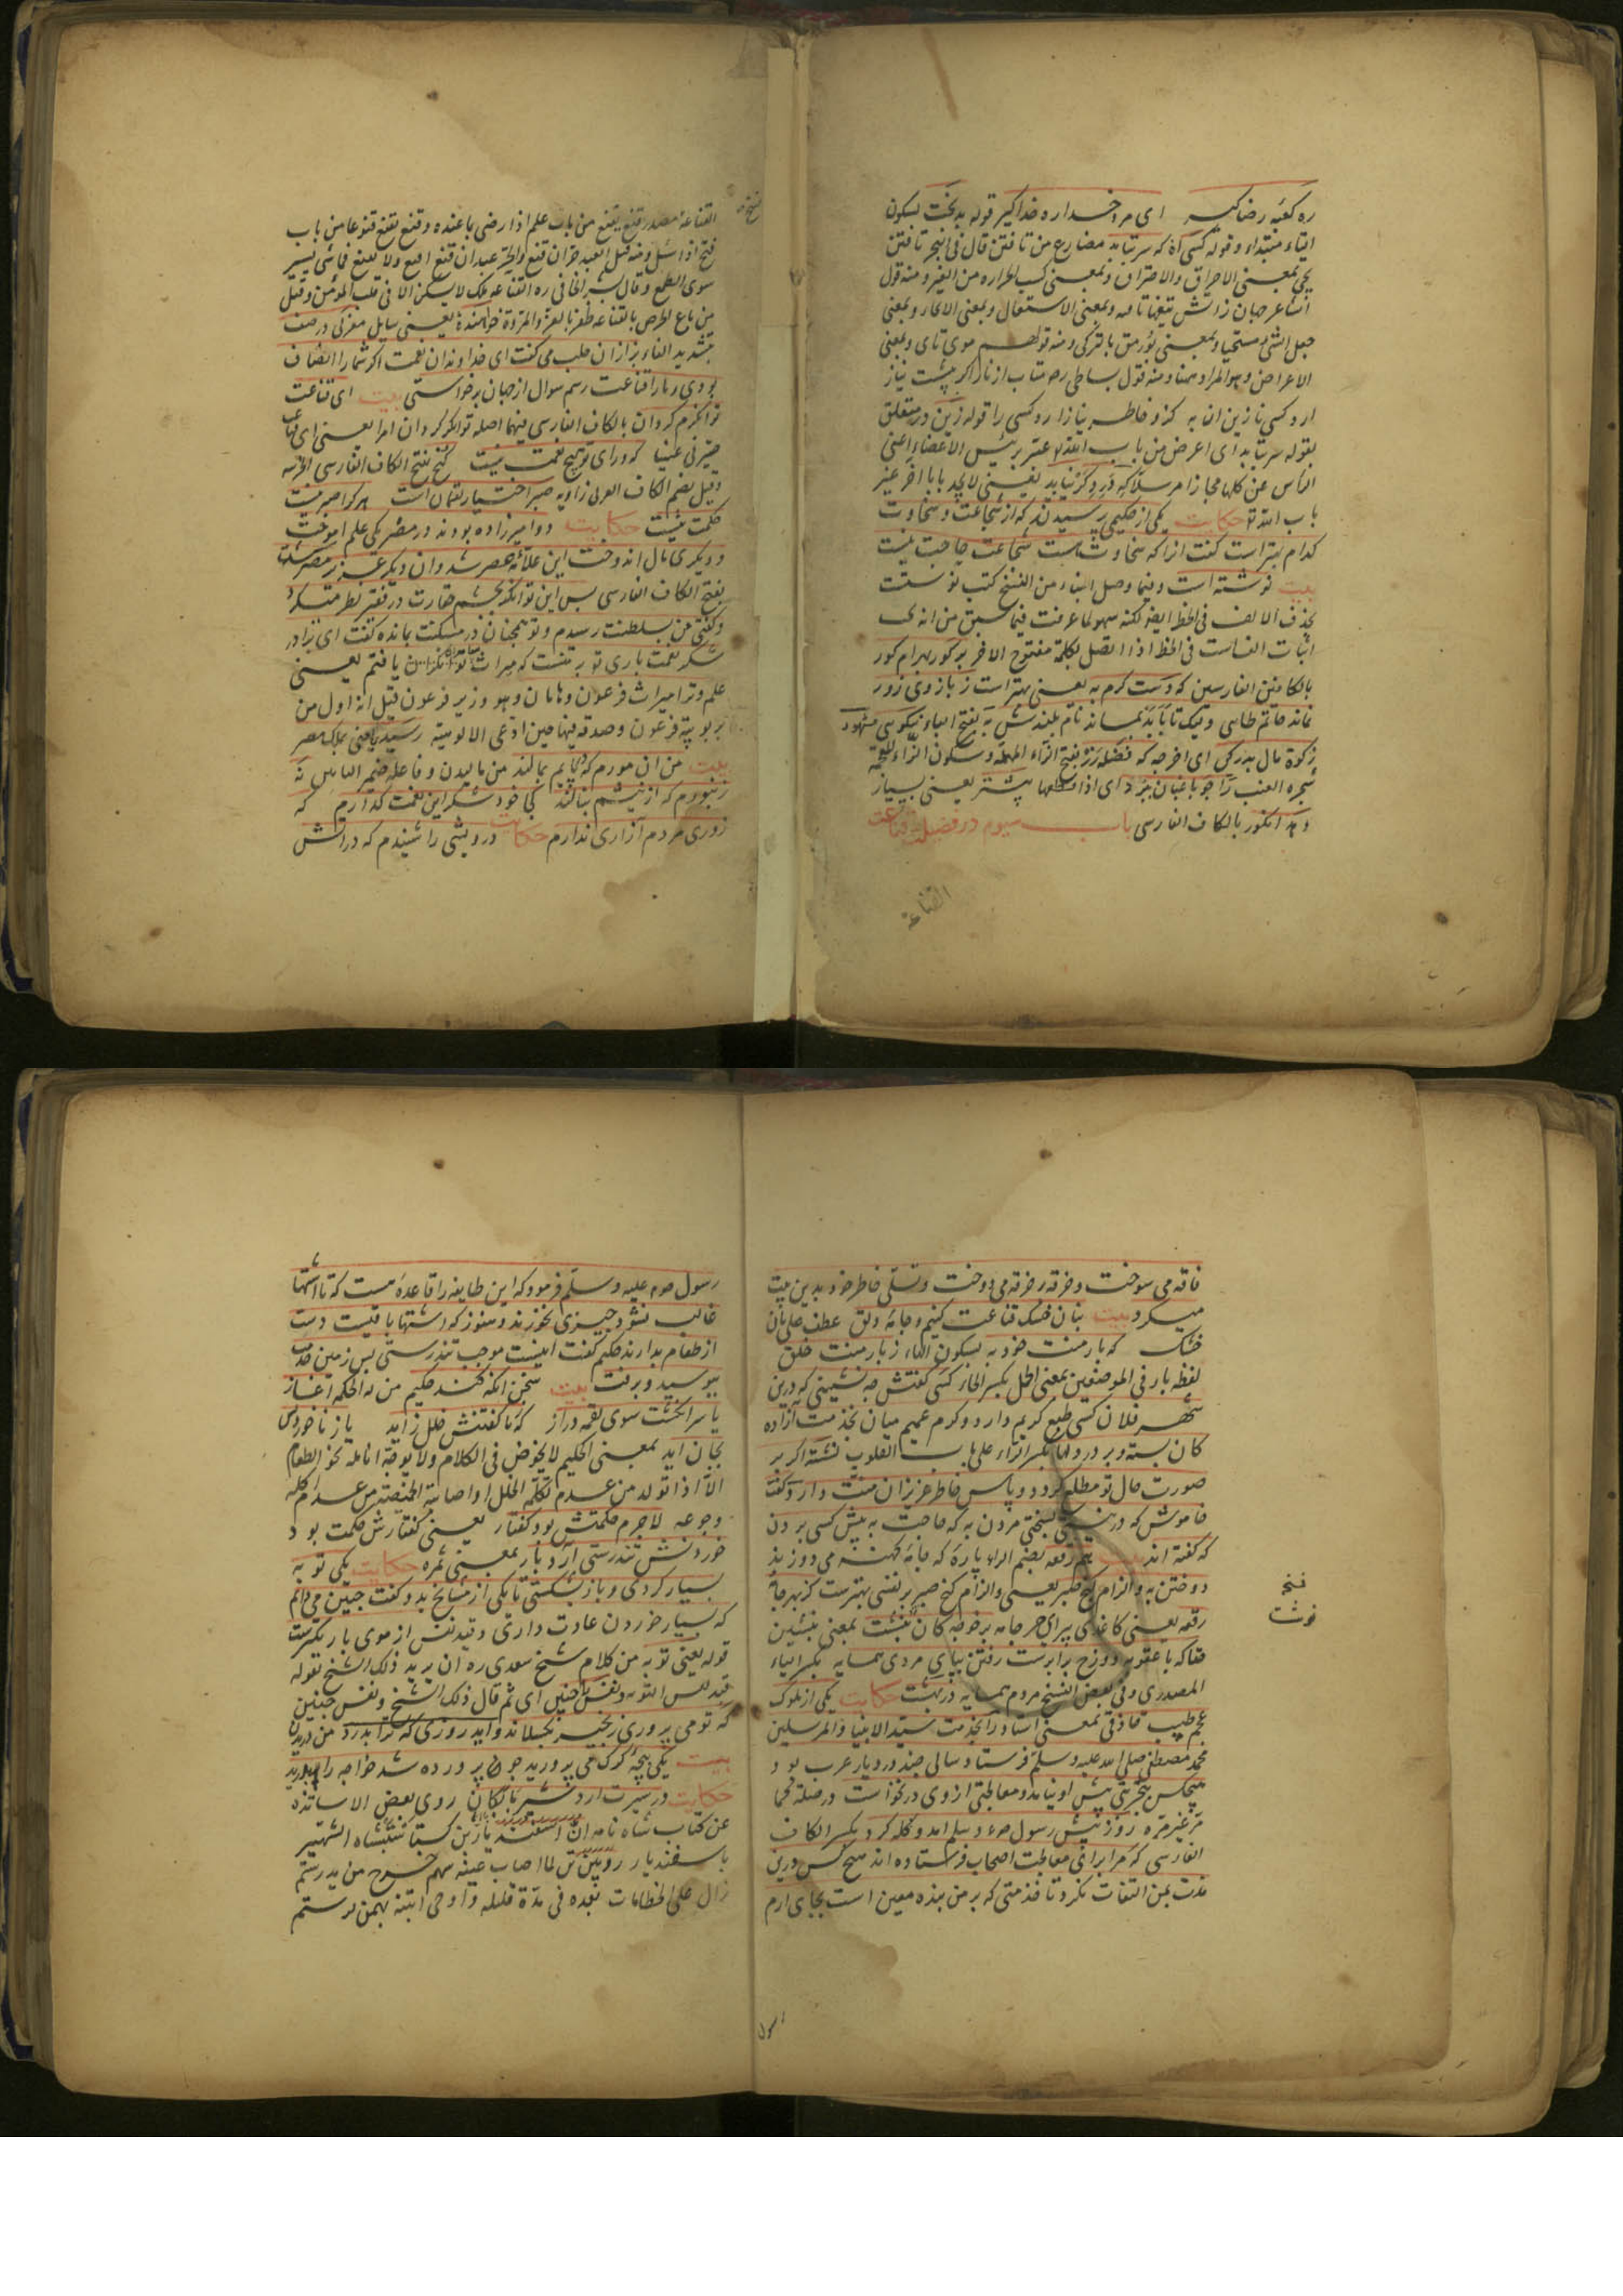 ره کعبه رضا گیر ای مرد خدا ره خدا گیر قوله بدبخت بسکون
التاء مبتداء و قوله کسی که سر تابد مضارع من تافتن قال فی البحر تافتن
یجی بمعنی الاحراق والاحتراق وبمعنی کسب الحراره من الغیر ومنه قول
وبمعنی الاستعمال وبمعنی
جعل الشی وبمعنی ومنه قولهم موی تابی وبمعنی
الاعراض وهو المراد هنا ومنه قول بساطی ره متاب از ناز اگر پیشت نیاز
ارد کسی نازنین انه به کزو خاطر نیازارد کسی را قوله زین در متعلق
بقوله سر تابد ای اعرض من باب الله عبر برئیس الاعضاء اعنی
الرأس عن کلها مجازا مرسلا که در دگر نیابد یعنی لا یجد بابا اخر غیر
باب الله تع حکایت یکی از حکیمی پرسیدند که از شجاعت و سخاوت
کدام بهتر است گفت انرا که سخاوتست بشجاعت حاجت نیست
بیت نوشته است وفیما وصل الینا من النسخ کتب نوستت
بحذف الالف فی الخط ایضا لکنه سهو لما عرفت فیما سبق من انه یجب
اثبات الف است فی الخط اذا اتصل بکلمة مفتوح الاخر بر گور بهرام گور
بالکافین الفارسین که دست کرم به یعنی بهتر است ز بازوی زور
نماند حاتم طایی و لیک تا بابد بماند نام بلندش به بفتح الباء نیکویی مشهور
زکوة مال بدر کن ای اخرجه که فضله رز بفتح الراء المهملة وسکون الزاء المعجمة
شجره العنب را چو باغبان ببرد ای اذا قطعها بیشتر یعنی بسیار
دهد انگور بالکاف الفارسی باب سیوم در فضیلت قناعت
القناعة
نسخه
القناعة مصدر قنع یقنع من باب علم اذا رضی بما عنده وقنع یقنع قنوعا من باب
فتح اذا سئل ومنه قیل العبد حر ان قنع والحر عبد ان قنع اقنع ولا تقنع فما شی یشین
سوی الطمع وقال بشر الحافی ره القناعه ملک لا یسکن الا فی قلب المؤمن وقیل
من باع الحرص بالقناعه ظفر بالعز والمروة خواهنده یعنی سایل مغربی در صف
بتشدید الفاء بزازان حلب می گفت ای خداوندان نعمت اگر شمارا انصاف
بودی و مارا قناعت رسم سوال از جهان برخواستی بیت ای قناعت
توانگرم گردان بالکاف الفارسی فیهما اصله توانگر گردان مرا یعنی ای قناعت
صیرنی غنیا که ورای تو هیچ نعمت نیست گنج بفتح الکاف الفارسی
وقیل بضم الکاف العربی زاویه صبر اختیار لقمان است هر کرا صبر نیست
حکمت نیست حکایت دو امیر زاده بودند در مصر یکی علم اموخت
و دیگری مال اندوخت این علامه عصر شد و ان دیگر عزیز مصر گشت
بفتح الکاف الفارسی پس این توانگر بچشم حقارت در فقیر نظر میکرد
و گفتی من بسلطنت رسیدم و تو همچنان در مسکنت بمانده گفت ای برادر
شکر نعمت باری تو بر منست که میراث پیغمبران یافتم یعنی
علم و ترا میراث فرعون و هامان وهو وزیر فرعون قیل انه اول من
بربوبیة فرعون وصدقه فیها حین ادعی الالوهیة رسید یعنی ملک مصر
بیت من ان مورم که در پایم بمالند من مالیدن وفاعله ضمیر الناس نه
زنبورم که از نیشم بنالند کجا خود شکر این نعمت گذارم که
زور مردم آزاری ندارم حکایت درویشی را شنیدم که در اتش
فاقه می سوخت و خرقه بر خرقه می دوخت و تسلی خاطر خود بدین بیت
میکرد بیت بنان خشک قناعت کنیم و جامه دلق عطف علی نان
خشک که بار منت خود به بسکون الهاء ز بار منت خلق
لفظه بار فی الموضعین بمعنی الحمل بکسر الحاء کسی گفتش چه نشینی که درین
شهر فلان کسی طبع کریم دارد و کرم عمیم میان بخدمت آزادگان
کان بسته و بر در دلها بکسر الراء علی باب القلوب نشسته اگر بر
صورت حال تو مطلع گردد و پاس خاطر عزیزان منت دارد گفت
خاموش که در نیستی بسختی مردن به که حاجت به پیش کسی بردن
که گفته اند بیت هم رقعه بضم الراء پاره که جامه کهنه می دوزند
دوختن به و الزام کنج صبر یعنی والزام کنج صبر بر نفسی بهترست کز بهر جامه
رقعه یعنی کاغذی برای هر جامه بر خواجه کان نبشت بمعنی
حقا که با عقوبة دوزخ برابرست رفتن بپای مردی همسایه بکسر الیاء
المصدری وفی بعض النسخ مردم همسایه در بهشت حکایت یکی از ملوک
عجم طبیب حاذقی بمعنی استاد را بخدمت سید الانبیا والمرسلین
محمد مصطفی صلی الله علیه وسلم فرستاد و سالی چند در دیار عرب بود
هیچکس بتجربتی پیش او نیامد و معالجتی از وی درنخواست
روز پیش رسول صلی الله علیه وسلم امد و گله کرد بکسر الکاف
الفارسی که مرا برای معالجت اصحاب فرستاده اند هیچ کس درین
مدت بمن التفات نکرد تا خدمتی که بر من بنده معین است بجای ارم
نسخه
نوشت
رسول
رسول صلی الله علیه وسلم فرمود که این طایفه را قاعده هست که تا اشتها
غالب نشود چیزی نخورند و هنوز که اشتها باقیست دست
از طعام بدارند حکیم گفت اینست موجب تندرستی پس زمین خدمت
ببوسید و برفت بیت سخن انگه کند حکیم من له الحکمة آغاز
یا سر انگشت سوی لقمه دراز که نا گفتنش خلل زاید یا ز ناخوردنش
بجان اید بمعنی الحکیم لا یخوض فی الکلام ولا یوجه انامله نحو الطعام
الا اذا تولد من عدم تکلمه الخلل او اصابته المخمصة من عدم اکله
وجوعه لاجرم حکمتش بود گفتار یعنی گفتارش حکمت بود
خوردنش تندرستی آرد بار بمعنی ثمره حکایت یکی توبه
بسیار کردی و باز بشکستی تا یکی از مشایخ بدو گفت چنین می دانم
که بسیار خوردن عادت داری و قید نفس از موی باریکترست
قوله یعنی توبه من کلام شیخ سعدی ره ان یرید ذلک الشیخ بقوله
قید نفس التوبه ونفس چنین ای ثم قال ذلک الشیخ ونفس چنین
که تو می پروری زنجیر بگسلاند و اید روزی که ترا بدرد من دریدن
بیت یکی بچه گرگ می پرورید چون پرورده شد خواجه را بردرید
حکایت در سیرت اردشیر بابکان روی بعض الاساتذة
عن کتاب شاه نامه ان اسفندیار بن گشتاسب شاه الشهیر
باسفندیار رویین تن لما اصاب عینه سهم خرج من ید رستم
زال علی الخطا مات بعده فی مدة قلیله واوصی ابنه بهمن لرستم